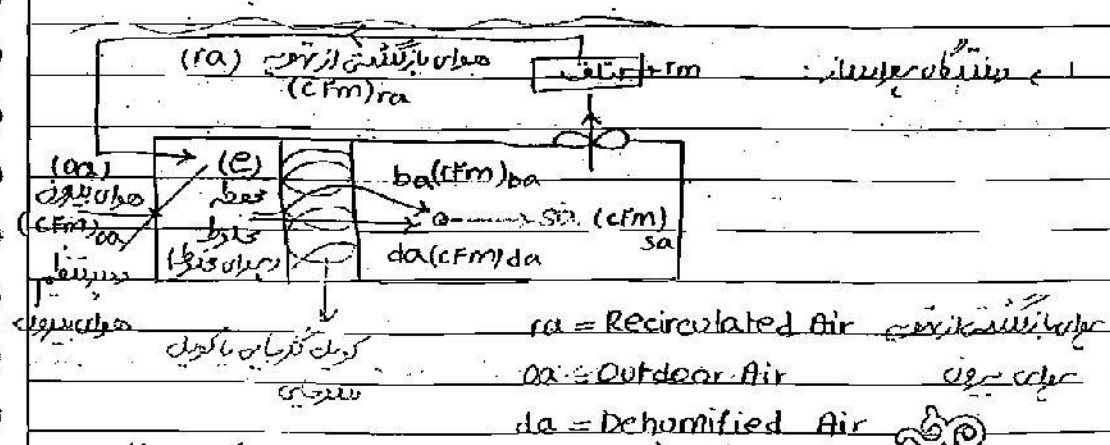 هوای بازگشتی از تهویه (ra)
(cfm)ra
rm
(oa)
هوای بیرون
(cfm)oa
هوای بیرون
(e)
محفظه
مخلوط
ba (cfm)ba
sa (cfm)sa
da (cfm)da
کویل گرمایی یا کویل
سرمایی
ra = Recirculated Air هوای بازگشت از تهویه
oa = Outdoor Air هوای بیرون
da = Dehumified Air